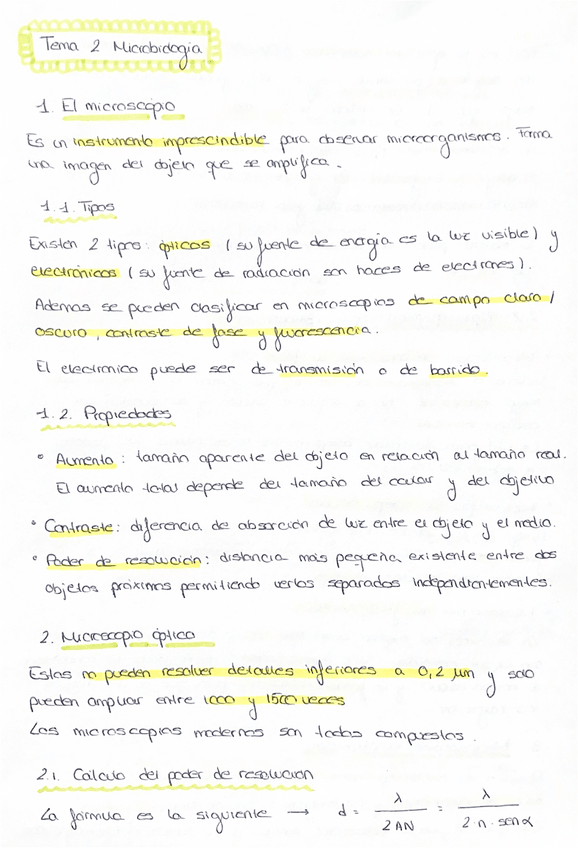 Tema 2 Microbiología
1. El microscopio
Es un instrumento imprescindible para observar microorganismos. Forma
una imagen del objeto que se amplifica.
1.1. Tipos
Existen 2 tipos: ópticos (su fuente de energía es la luz visible) y
electrónicos (su fuente de radiación son haces de electrones).
Ademas se pueden clasificar en microscopios de campo claro/
oscuro, contraste de fase y fluorescencia.
El electronico puede ser de transmisión o de barrido.
1.2. Propiedades
• Aumento: tamaño aparente del objeto en relación al tamaño real.
El aumento total depende del tamaño del ocular y del objetivo
• Contraste: diferencia de absorción de luz entre el objeto y el medio.
• Poder de resolución: distancia más pequeña existente entre dos
objetos próximos permitiendo verlos separados independientementes.
2. Microscopio óptico
Estos no pueden resolver detalles inferiores a 0,2 μm y solo
pueden ampliar entre 1000 y 1500 veces
Los microscopios modernos son todos compuestos.
2.1. Calculo del poder de resolución
La fórmula es la siguiente → d = λ / 2 AN = λ / 2·n·senα